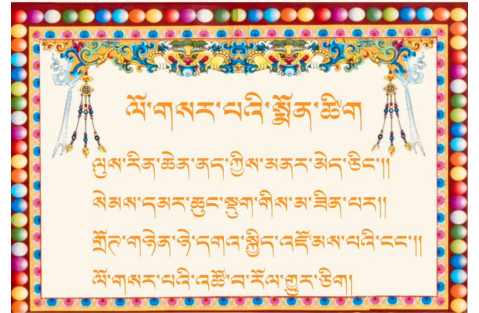 ལོ་གསར་པའི་སྨོན་ཚིག
ལུས་རིན་ཆེན་ནད་ཀྱིས་མནར་མེད་ཅིང་།།
སེམས་དམར་ཆུང་སྡུག་གིས་མ་ཟིན་པར།།
གྲོཊ་གཉེན་ཉེ་དགའ་སྐྱིད་འཛོམས་པའི་ངང་།།
ལོ་གསར་པའི་འཚོ་བ་རོལ་གྱུར་ཅིག།